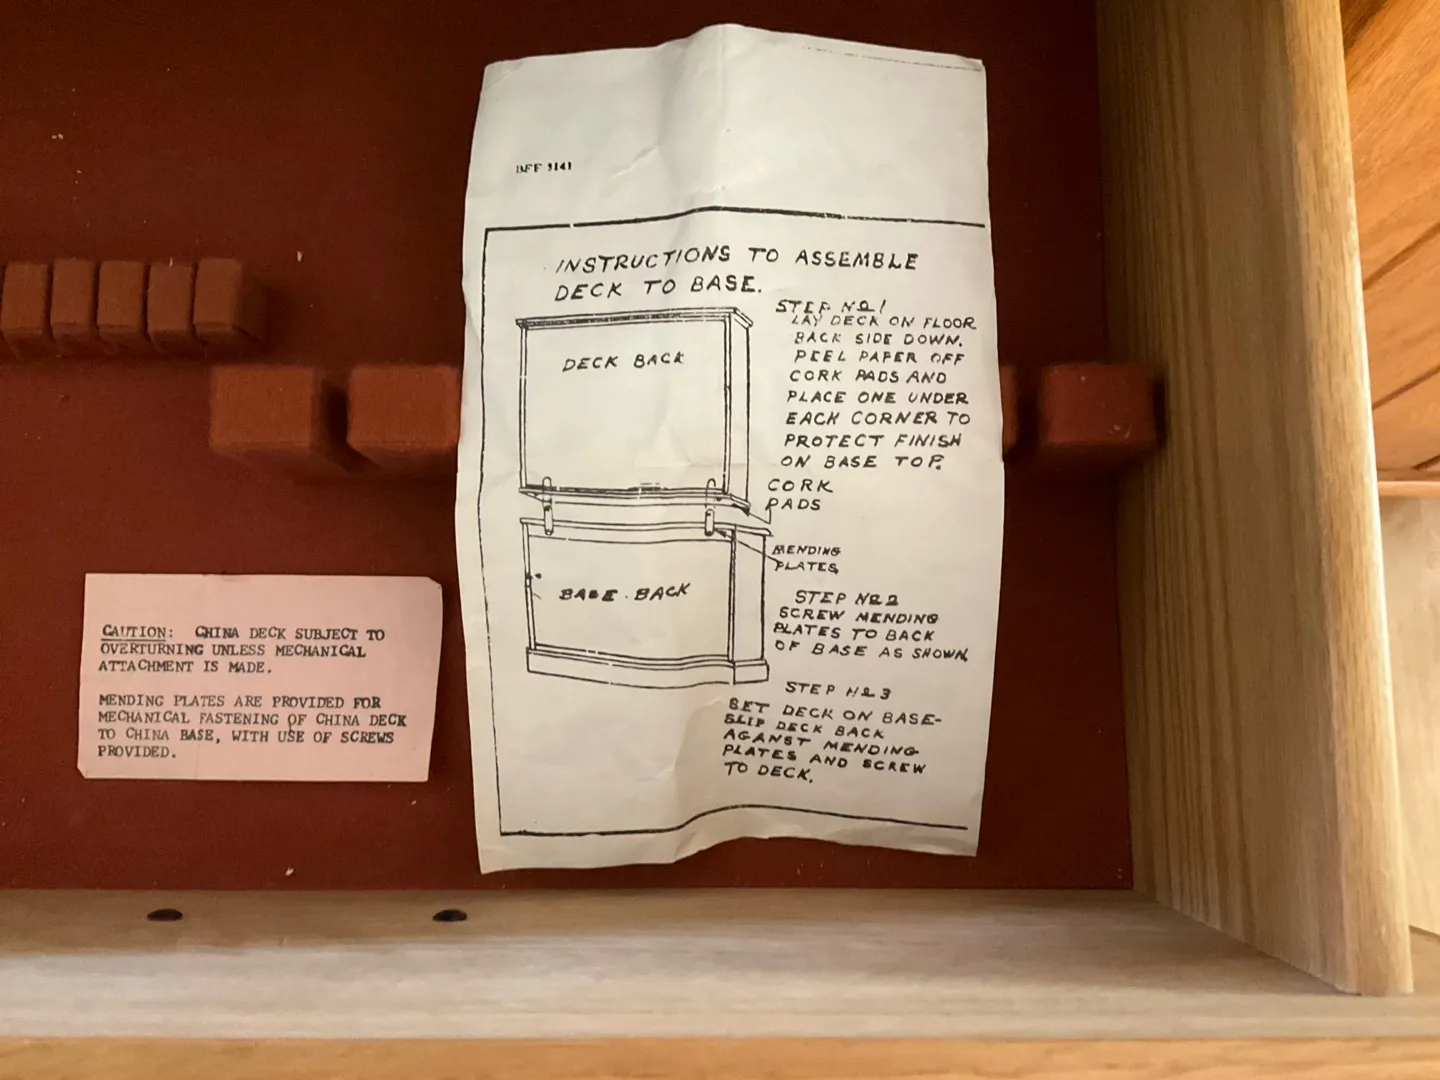 BFF 3141
INSTRUCTIONS TO ASSEMBLE
DECK TO BASE.
STEP № 1
LAY DECK ON FLOOR
BACK SIDE DOWN.
PEEL PAPER OFF
CORK PADS AND
PLACE ONE UNDER
EACH CORNER TO
PROTECT FINISH
ON BASE TOP.
DECK BACK
CORK
PADS
MENDING
PLATES
BASE BACK
STEP № 2
SCREW MENDING
PLATES TO BACK
OF BASE AS SHOWN.
STEP № 3
SET DECK ON BASE-
SLIP DECK BACK
AGANST MENDING
PLATES AND SCREW
TO DECK.
CAUTION: CHINA DECK SUBJECT TO
OVERTURNING UNLESS MECHANICAL
ATTACHMENT IS MADE.
MENDING PLATES ARE PROVIDED FOR
MECHANICAL FASTENING OF CHINA DECK
TO CHINA BASE, WITH USE OF SCREWS
PROVIDED.